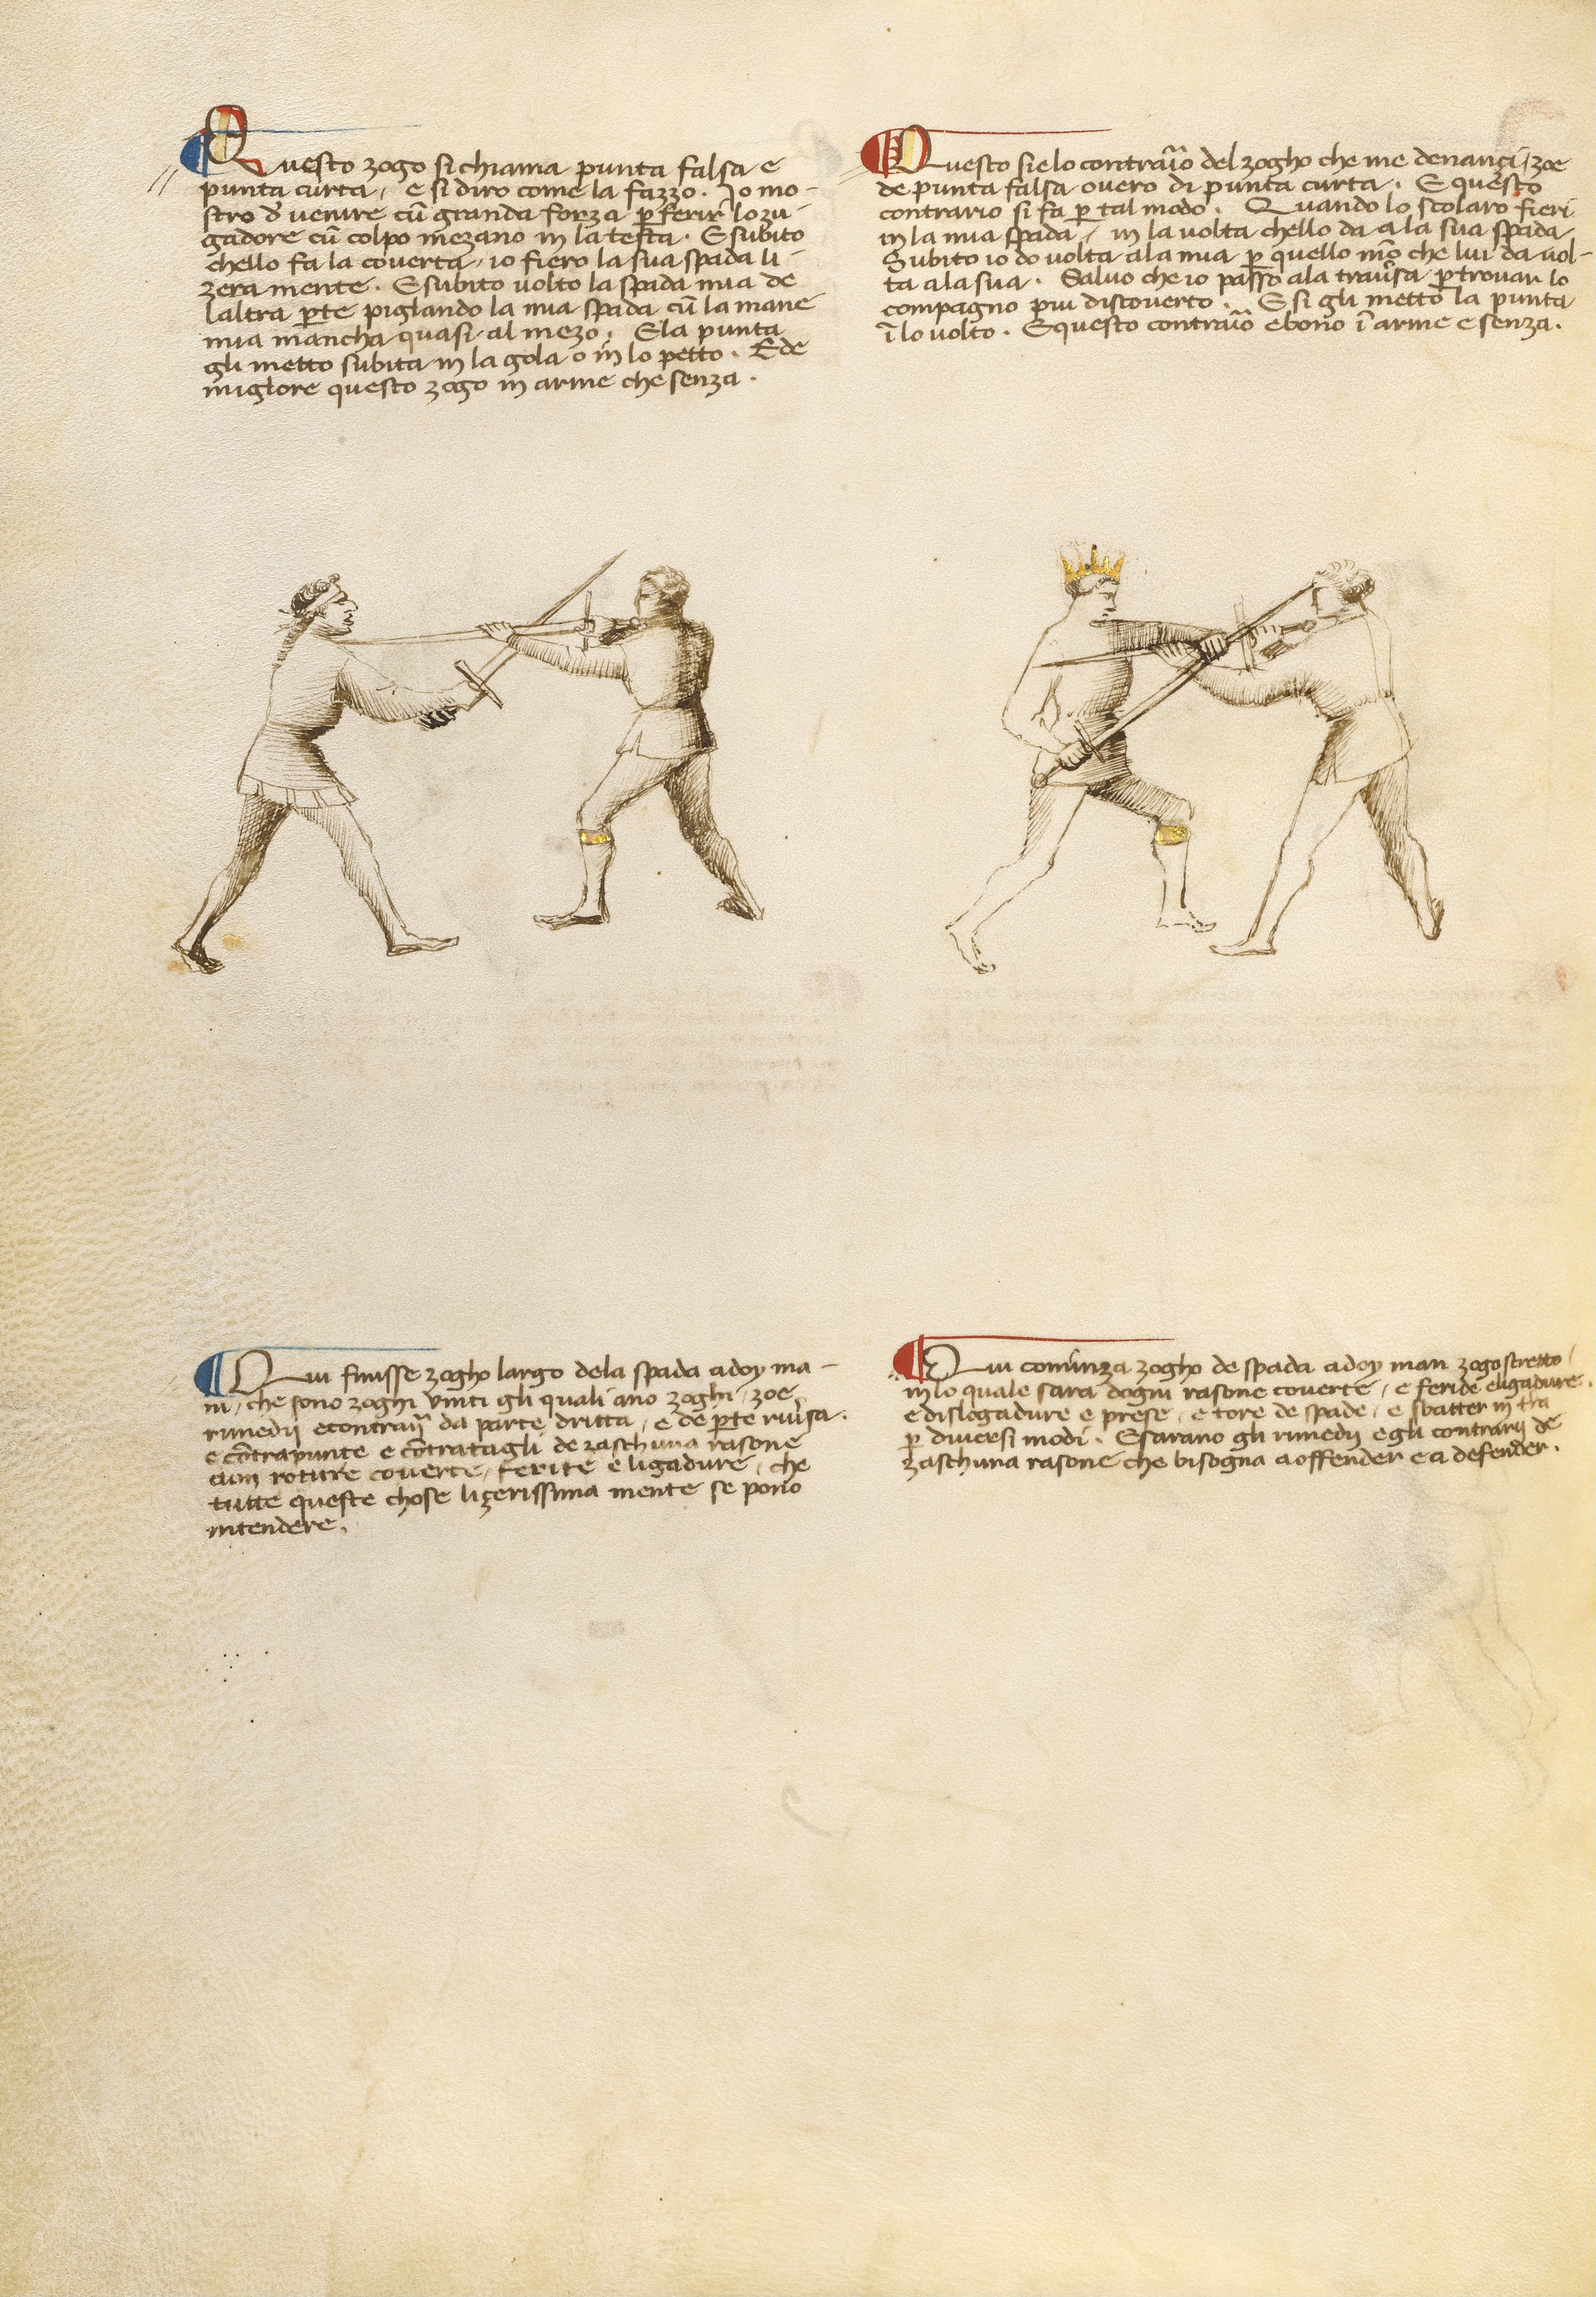 Questo zogo si chiama punta falsa e
punta curta, e si diro come la fazzo. Io mo-
stro d'venire cũ granda forza p̱ ferir lo zu-
gadore cũ colpo mezano in la testa. E subito
chello fa la coverta, io fiero la sua spada li-
zera mente. E subito volto la spada mia de
laltra p̱te piglando la mia spada cũ la mane
mia mancha quasi al mezo. E la punta
gli metto subita in la gola o in lo petto. Ed e
miglore questo zogo in arme che senza.
Questo sie lo contrario del zogho che me denançi, zoe
de punta falsa overo di punta curta. E questo
contrario si fa p̱ tal modo. Quando lo scolaro fieri
in la mia spada, in la volta chello da a la sua spada
Subito io do volta ala mia p̱ quello mõ che lui da vol-
ta a la sua. Salvo che io passo ala trav̉sa p̱ trovar lo
compagno piu discoverto. E si gli metto la punta
ĩ lo volto. E questo contrario e bono ĩ arme e senza.
Qui finisse zogho largo dela spada a doy ma-
ni, che sono zoghi uniti gli quali ano zoghi, zoe
rimedii e contrarii da parte dritta, e de p̱te riv̉sa.
e cõtrapunte e cõtratagli de zaschuna rasone
cum roture coverte, ferite e ligadure, che
tutte queste chose lizerissima mente se pono
intendere.
Qui cominza zogho de spada a doy man zogo stretto,
in lo quale sara dogni rasone coverte, e feride e ligadure.
e dislogadure e prese, e tore de spade, e sbatter in tra
p̱ diversi modi. E sarano gli rimedii e gli contrarii de
zaschuna rasone che bisogna a offender e a defender.